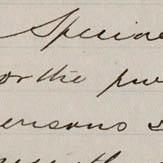 Specime
or the pur
ersons s